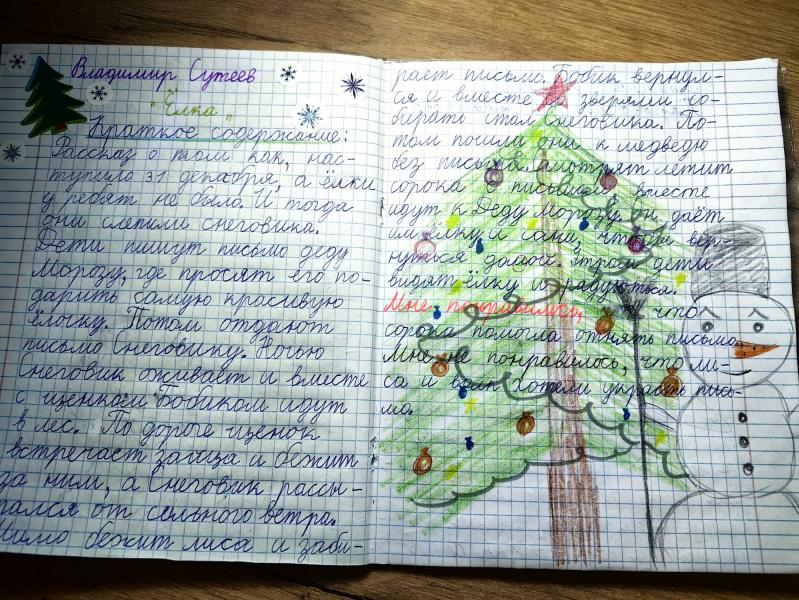 Владимир Сутеев
"Ёлка"
Краткое содержание:
Рассказ о том как, нас-
тупило 31 декабря, а ёлки
у ребят не было. И тогда
они слепили снеговика.
Дети пишут письмо деду
Морозу, где просят его по-
дарить самую красивую
ёлочку. Потом отдают
письмо Снеговику. Ночью
Снеговик оживает и вместе
с щенком Бобиком идут
в лес. По дороге щенок
встречает зайца и бежит
за ним, а Снеговик рассы-
пался от сильного ветра.
Мимо бежит лиса и заби-
рает письмо. Бобик вернул-
ся и вместе со зверями со-
бирать стал Снеговика. По-
том пошли они к медведю
без письма. Смотрят летит
сорока с письмом и вместе
идут к Деду Морозу. Он даёт
им ёлку и сани, чтобы вер-
нуться домой. Утром дети
видят ёлку и радуются.
Мне понравилось, что
сорока помогла отнять письмо.
Мне не понравилось, что ли-
са и волк хотели украсть пись-
мо.